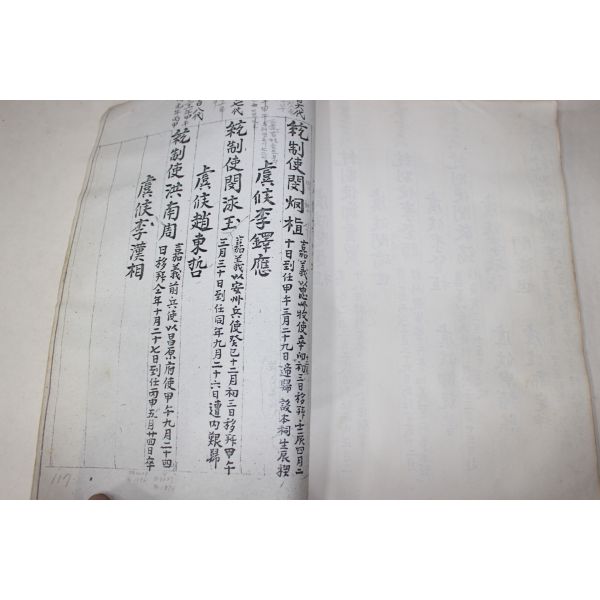 統制使閔炯植 嘉義以忠州牧使辛卯初三日移拜壬辰四月二
十日到任甲午三月二十九日遞歸設本祠生辰稧
虞候李鐸應
統制使閔泳玉 嘉義以安州兵使癸巳十二月初三日移拜甲午
三月三十日到任同年九月二十六日遭內艱歸
虞候趙東哲
統制使洪南周 嘉義前兵使以昌原府使甲午九月二十四
日移拜仝年十月二十七日到任丙申五月廿四日卒
虞候李漢相
117